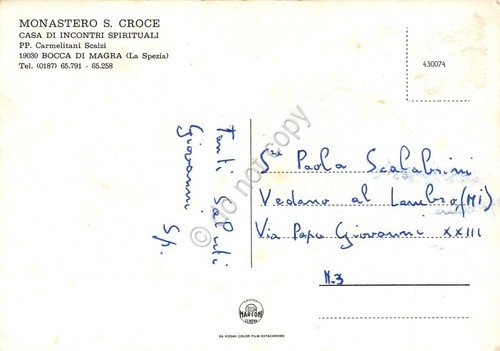 MONASTERO S. CROCE
CASA DI INCONTRI SPIRITUALI
PP. Carmelitani Scalzi
19030 BOCCA DI MAGRA (La Spezia)
Tel. (0187) 65.791 - 65.258
430074
Tanti Saluti
Giovanni Sp.
do not copy
Paola Scalabrini
Vedano al Lambro (MI)
Via Papa Giovanni XXIII
N. 3
EDIZIONI
MARCONI
GENOVA
DA KODAK COLOR FILM EKTACHROME